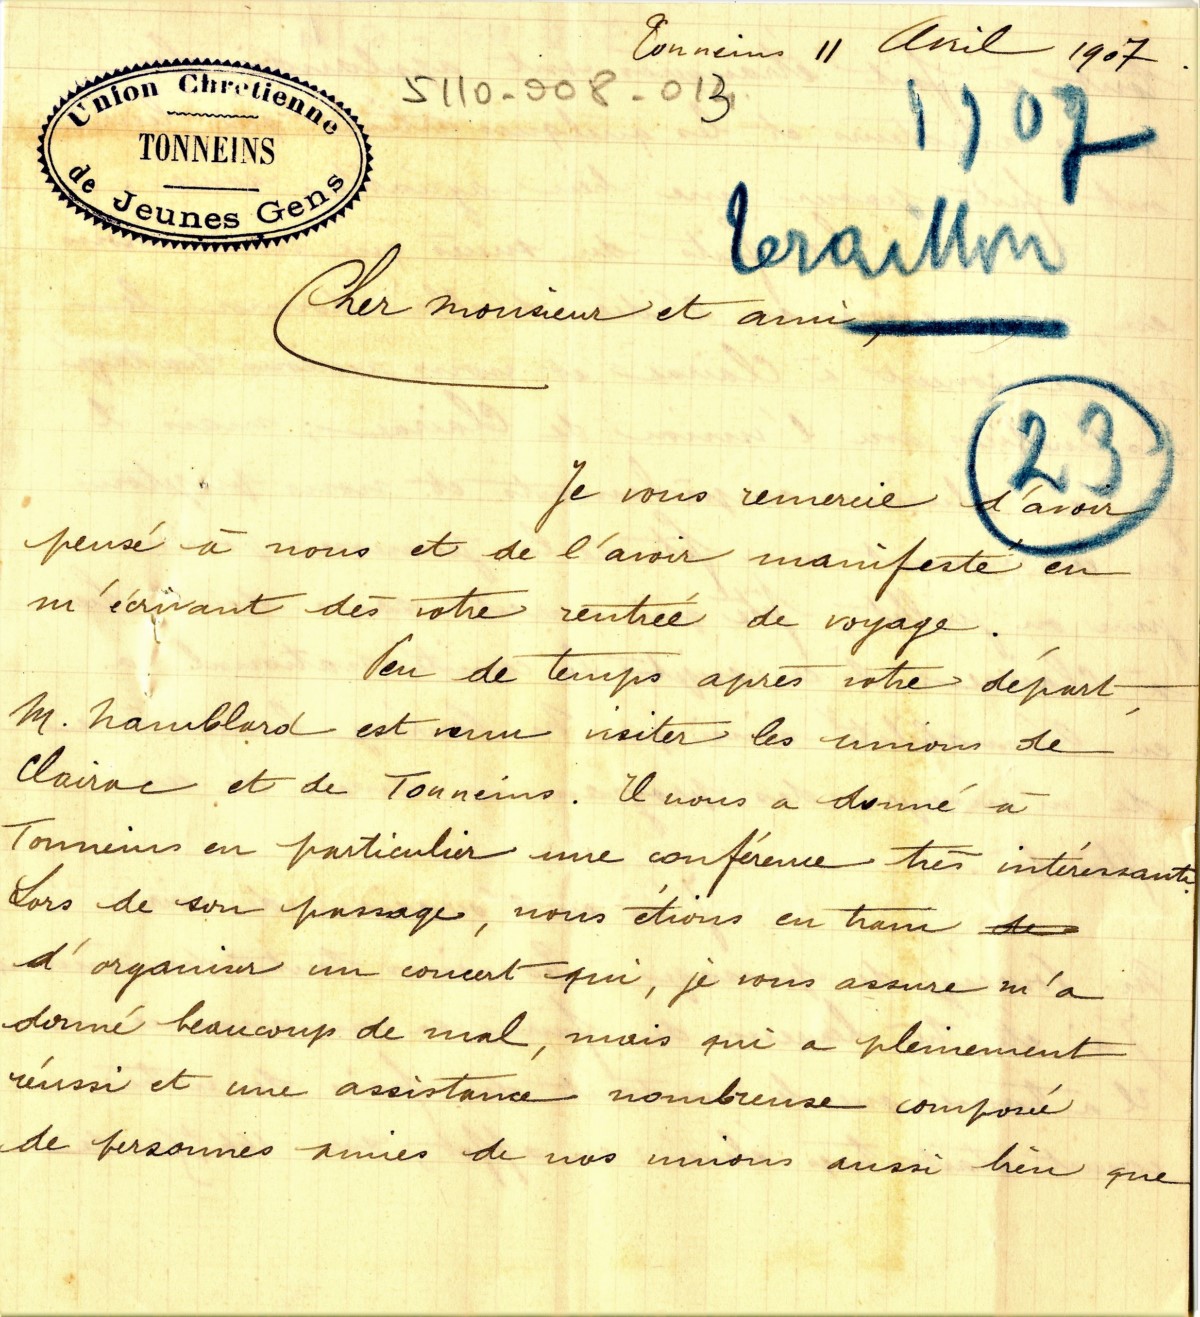 Tonneins 11 Avril 1907.
5110-908-013
1907
Union Chretienne
TONNEINS
de Jeunes Gens
Teraillon
Cher monsieur et ami,
23
Je vous remercie d'avoir
pensé à nous et de l'avoir manifesté en
m'écrivant dès votre rentrée de voyage.
Peu de temps après votre départ,
M. Namblard est venu visiter les unions de
Clairac et de Tonneins. Il nous a donné à
Tonneins en particulier une conférence très intéressante.
Lors de son passage, nous étions en train de
d'organiser un concert qui, je vous assure m'a
donné beaucoup de mal, mais qui a pleinement
réussi et une assistance nombreuse composée
de personnes amies de nos unions aussi bien que